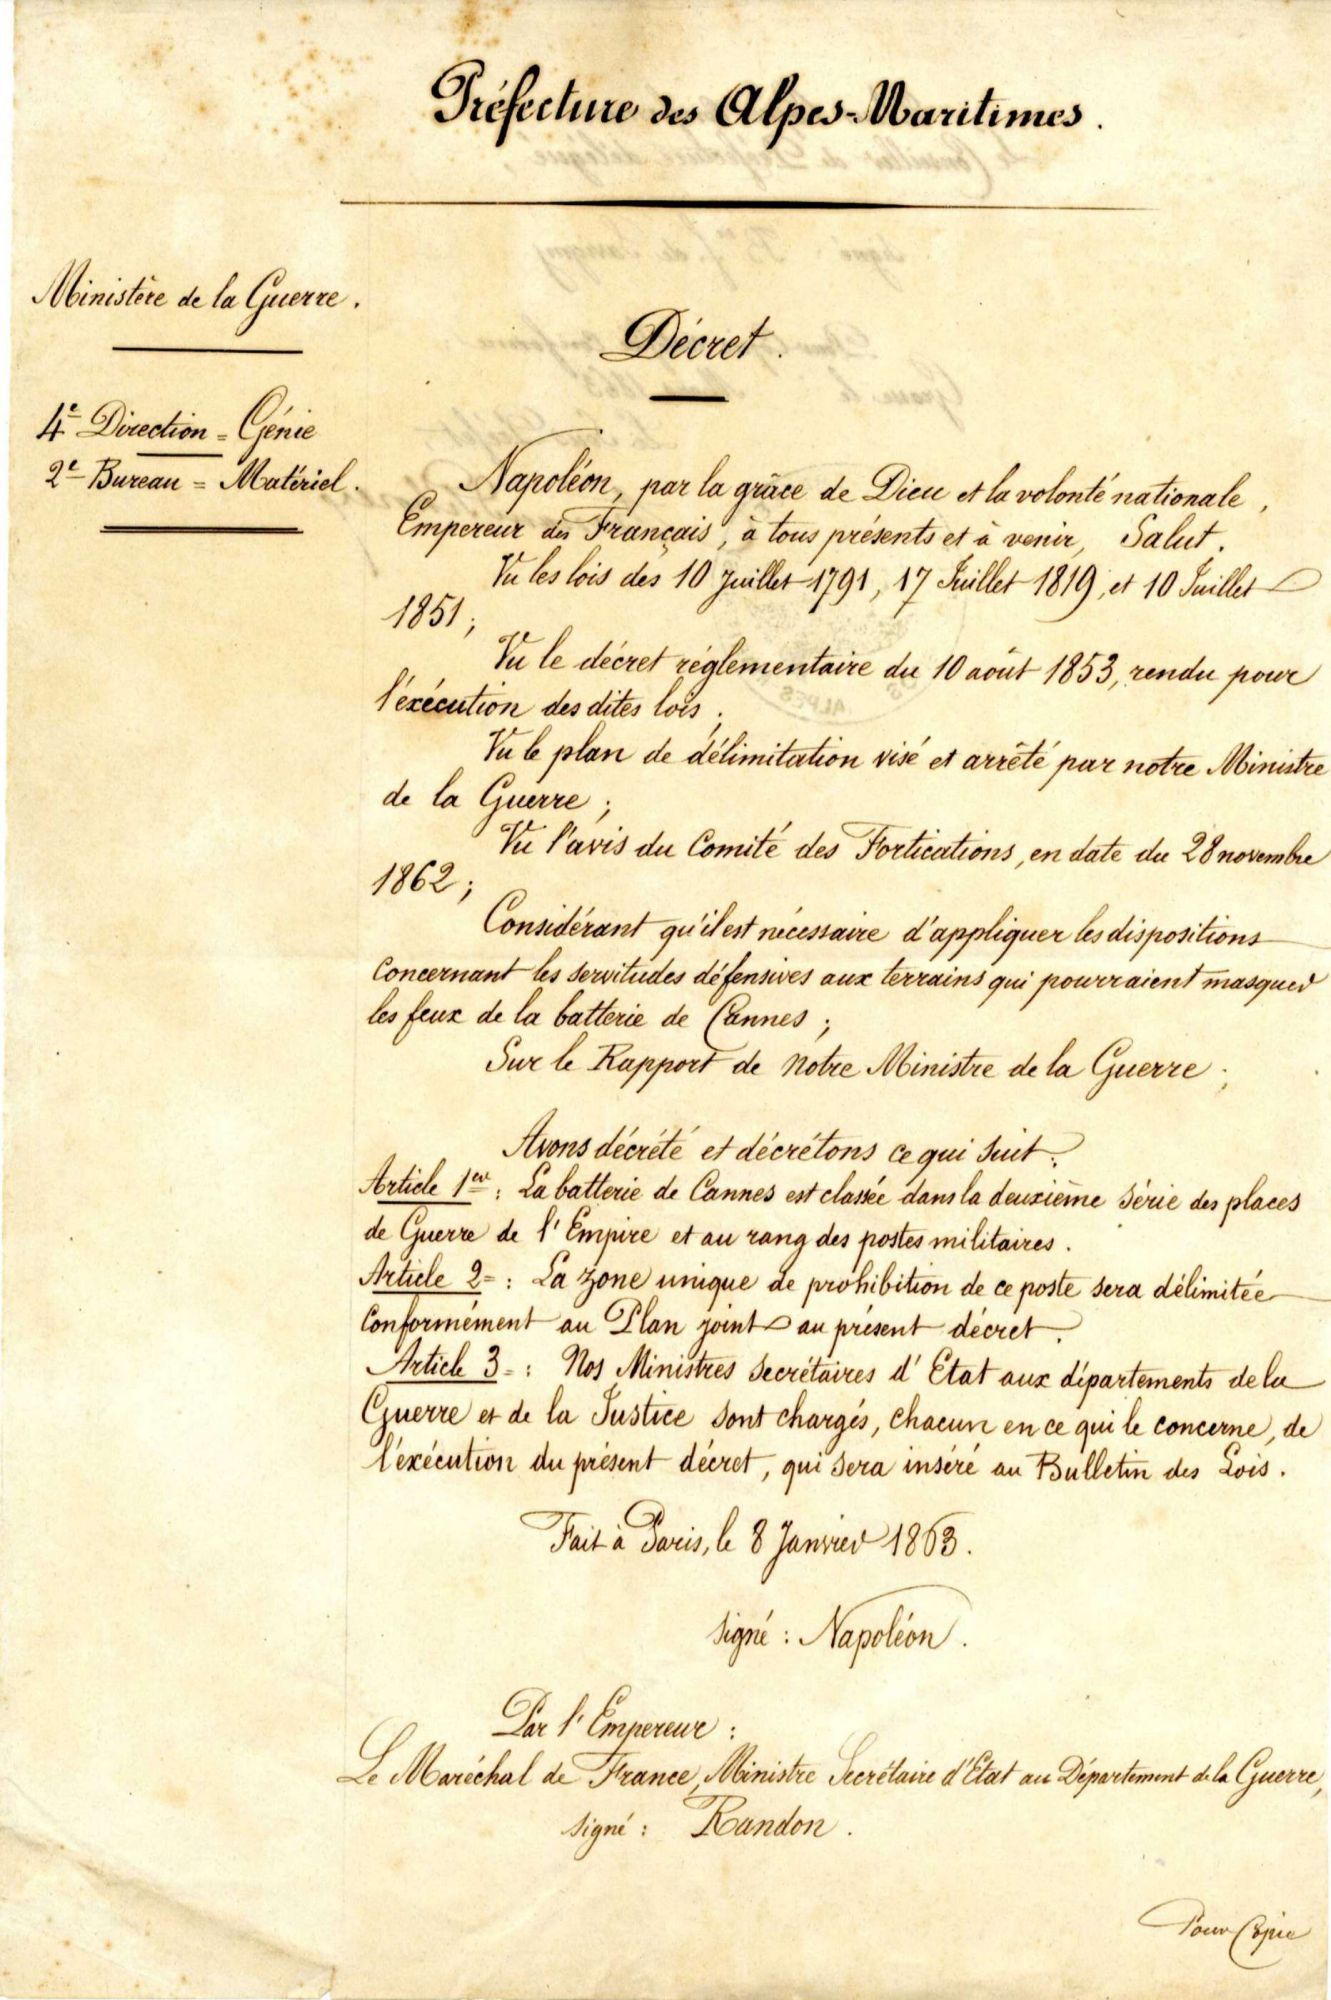 Préfecture des Alpes-Maritimes.
Ministère de la Guerre.
4e Direction = Génie
2e Bureau = Matériel.
Décret.
Napoléon, par la grâce de Dieu et la volonté nationale,
Empereur des Français, à tous présents et à venir, Salut.
Vu les lois des 10 Juillet 1791, 17 Juillet 1819, et 10 Juillet
1851;
Vu le décret réglementaire du 10 août 1853, rendu pour
l'éxécution des dites lois;
Vu le plan de délimitation visé et arrêté par notre Ministre
de la Guerre;
Vu l'avis du Comité des Fortications, en date du 28 novembre
1862;
Considérant qu'il est nécessaire d'appliquer les dispositions
concernant les servitudes défensives aux terrains qui pourraient masquer
les feux de la batterie de Cannes;
Sur le Rapport de Notre Ministre de la Guerre;
Avons décrété et décrétons ce qui suit:
Article 1er: La batterie de Cannes est classée dans la deuxième série des places
de Guerre de l'Empire et au rang des postes militaires.
Article 2=: La zone unique de prohibition de ce poste sera délimitée
Conformément au Plan joint au présent décret.
Article 3=: Nos Ministres Secrétaires d'Etat aux départements de la
Guerre et de la Justice sont chargés, chacun en ce qui le concerne, de
l'éxécution du présent décret, qui sera inséré au Bulletin des Lois.
Fait à Paris, le 8 Janvier 1863.
signé: Napoléon.
Par l'Empereur:
Le Maréchal de France, Ministre Secrétaire d'Etat au Département de la Guerre,
signé: Randon.
Pour Copie